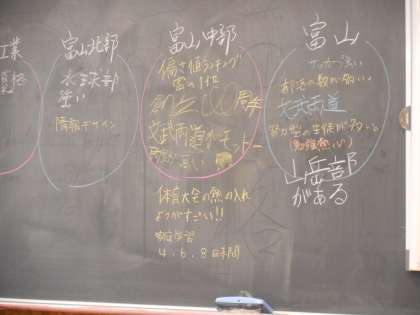 工業
資格
富山北部
水球部
強い
情報デザイン
富山中部
偏さ値ランキング
富の1位
創立100周年
文武両道がモットー
体育大会の熱の入れ
ようがすごい!!
家庭学習
4、6、8時間
富山
サッカー強い
部活の数が多い
文武両道
努力型の生徒が多い
(勉強熱心)
山岳部
がある